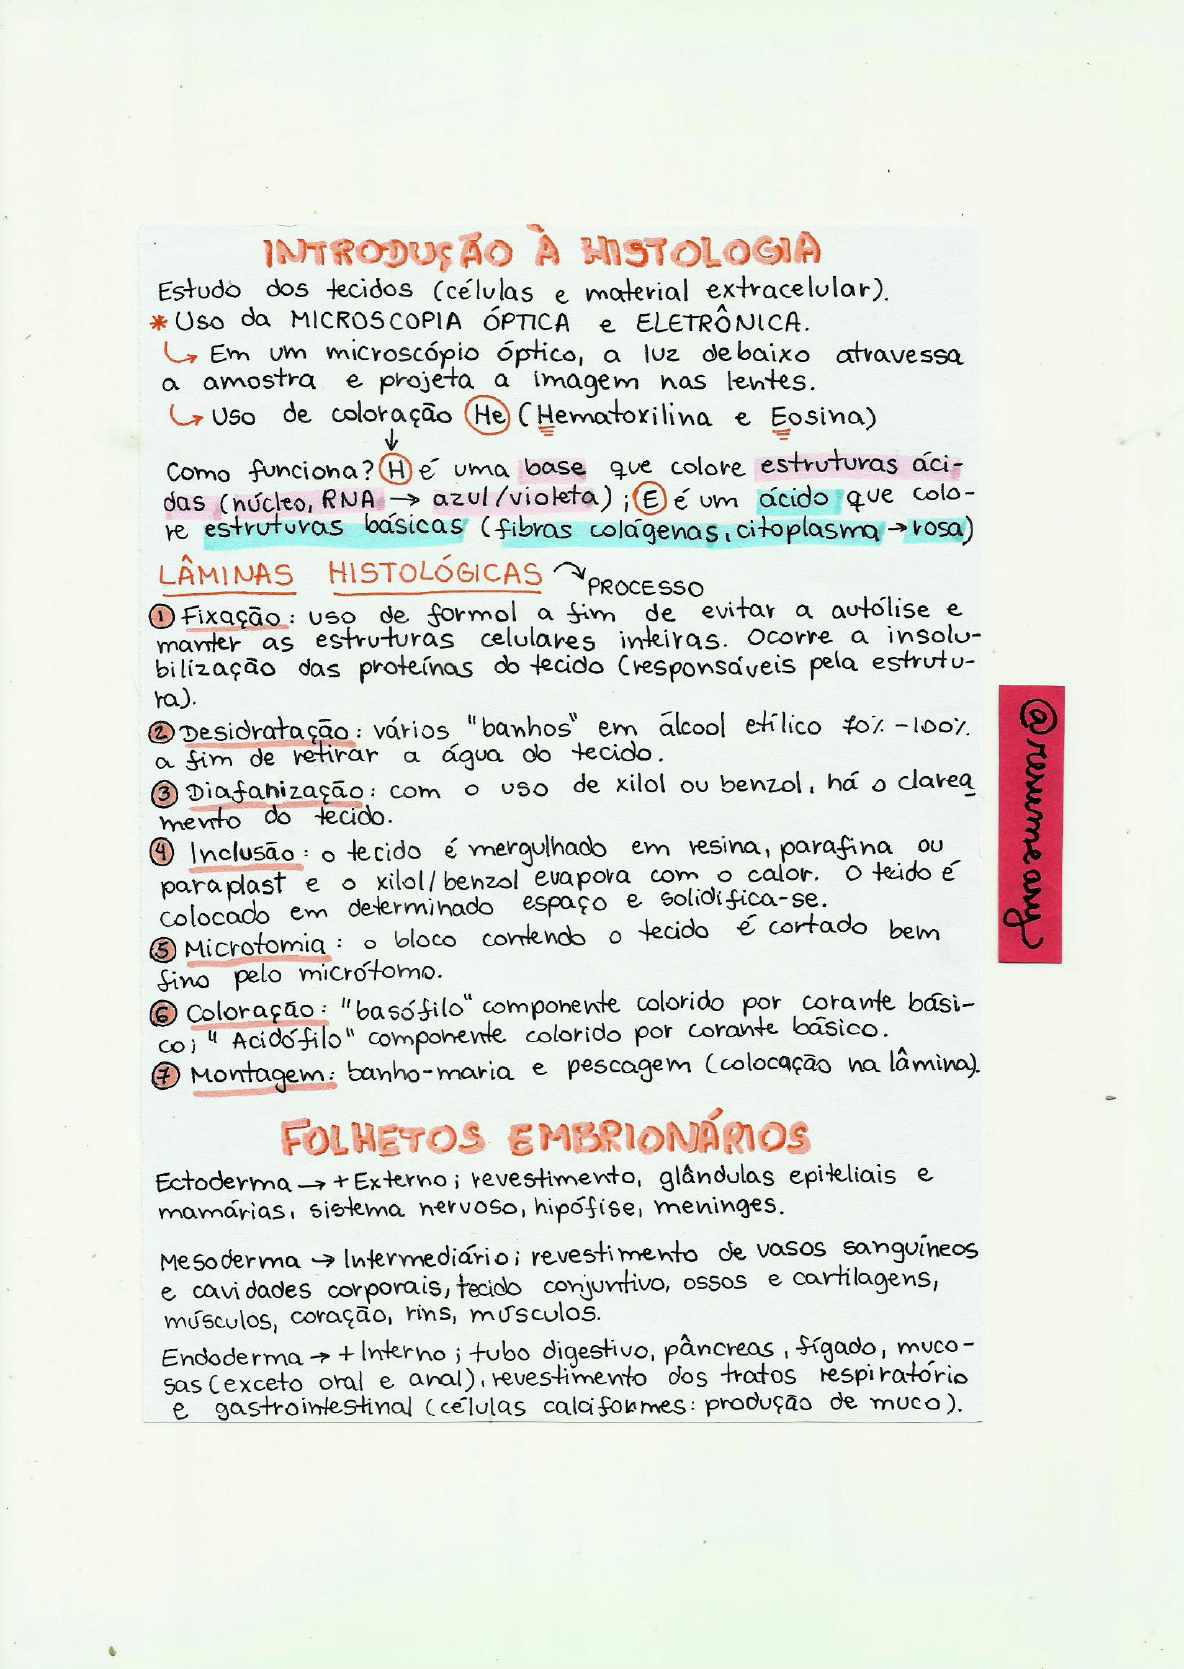 INTRODUÇÃO À HISTOLOGIA
Estudo dos tecidos (células e material extracelular).
* Uso da MICROSCOPIA ÓPTICA e ELETRÔNICA.
↳ Em um microscópio óptico, a luz debaixo atravessa
a amostra e projeta a imagem nas lentes.
↳ Uso de coloração He (Hematoxilina e Eosina)
↓
Como funciona? H é uma base que colore estruturas áci-
das (núcleo, RNA → azul/violeta); E é um ácido que colo-
re estruturas básicas (fibras colágenas, citoplasma → rosa)
LÂMINAS HISTOLÓGICAS ↷ PROCESSO
① Fixação: uso de formol a fim de evitar a autólise e
manter as estruturas celulares inteiras. Ocorre a insolu-
bilização das proteínas do tecido (responsáveis pela estrutu-
ra).
② Desidratação: vários "banhos" em álcool etílico 70% - 100%.
a fim de retirar a água do tecido.
③ Diafanização: com o uso de xilol ou benzol, há o clarea
mento do tecido.
④ Inclusão: o tecido é mergulhado em resina, parafina ou
paraplast e o xilol/benzol evapora com o calor. O tecido é
colocado em determinado espaço e solidifica-se.
⑤ Microtomia: o bloco contendo o tecido é cortado bem
fino pelo micrótomo.
⑥ Coloração: "basófilo" componente colorido por corante bási-
co; "Acidófilo" componente colorido por corante básico.
⑦ Montagem: banho-maria e pescagem (colocação na lâmina).
FOLHETOS EMBRIONÁRIOS
Ectoderma → + Externo; revestimento, glândulas epiteliais e
mamárias, sistema nervoso, hipófise, meninges.
Mesoderma → Intermediário; revestimento de vasos sanguíneos
e cavidades corporais, tecido conjuntivo, ossos e cartilagens,
músculos, coração, rins, músculos.
Endoderma → + Interno; tubo digestivo, pâncreas, fígado, muco-
sas (exceto oral e anal), revestimento dos tratos respiratório
e gastrointestinal (células calciformes: produção de muco).
@resumeany